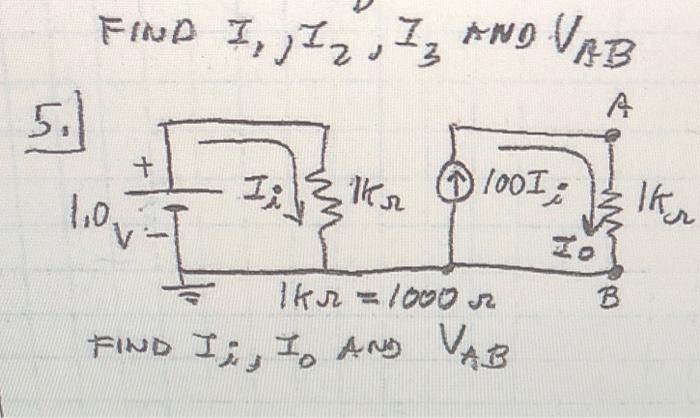 FIND I₁, I₂, I₃ AND V_AB
5.
A
+
1.0 V
-
I_i
1kΩ
100I_i
1kΩ
I_o
1kΩ = 1000 Ω
B
FIND I_i, I_o AND V_AB